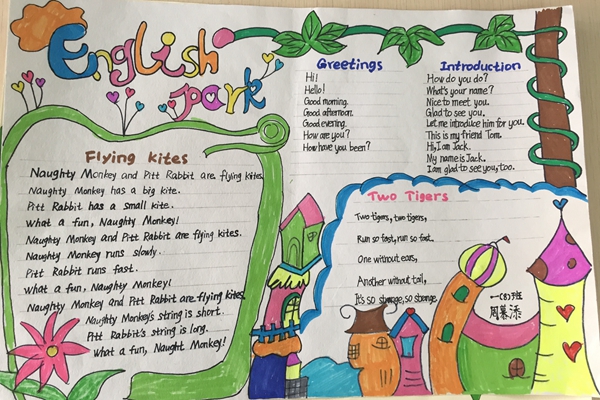 English
park
Flying kites
Naughty Monkey and Pitt Rabbit are flying kites.
Naughty Monkey has a big kite.
Pitt Rabbit has a small kite.
What a fun, Naughty Monkey!
Naughty Monkey and Pitt Rabbit are flying kites.
Naughty Monkey runs slowly.
Pitt Rabbit runs fast.
What a fun, Naughty Monkey!
Naughty Monkey and Pitt Rabbit are flying kites.
Naughty Monkey's string is short.
Pitt Rabbit's string is long.
What a fun, Naught Monkey!
Greetings
Hi!
Hello!
Good morning.
Good afternoon.
Good evening.
How are you?
How have you been?
Introduction
How do you do?
What's your name?
Nice to meet you.
Glad to see you.
Let me introduce him for you.
This is my friend Tom.
Hi, I am Jack.
My name is Jack.
I am glad to see you, too.
Two Tigers
Two tigers, two tigers,
Run so fast, run so fast.
One without ears,
Another without tail,
It's so strange, so strange.
一(8)班
周慕添